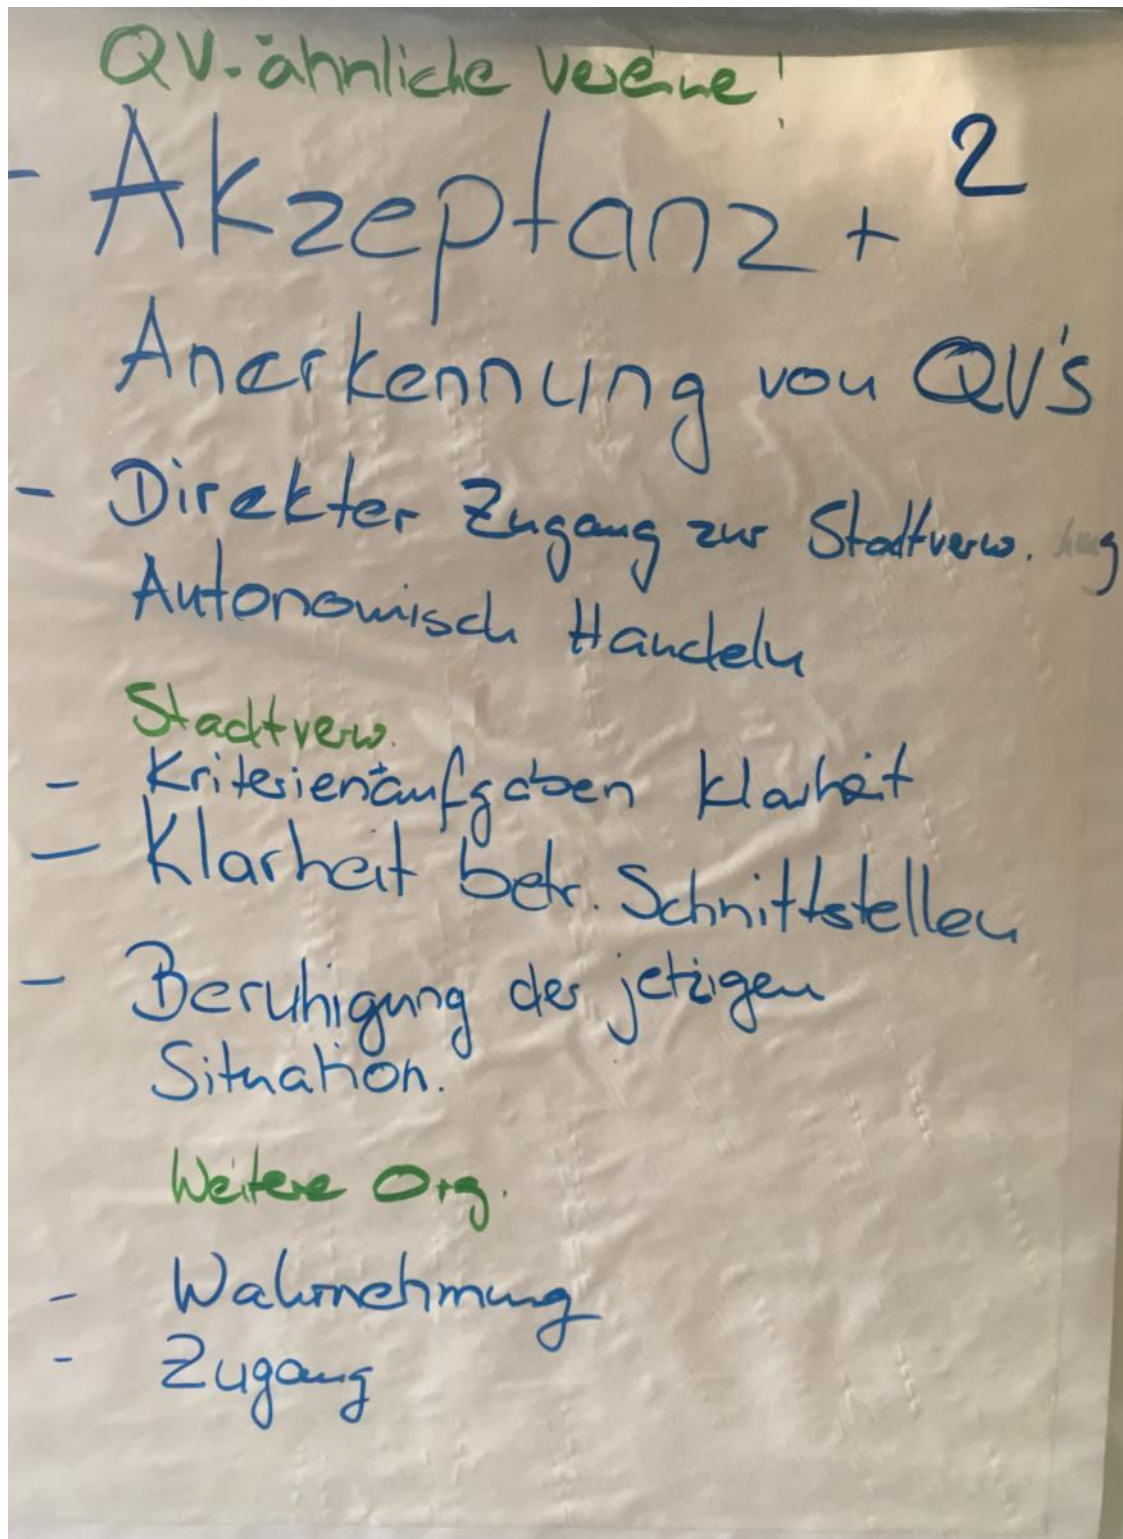 QV-ähnliche Vereine!
2
- Akzeptanz +
Anerkennung von QV's
- Direkter Zugang zur Stadtverw.
Autonomisch Handeln
Stadtverw.
- Kriterien + aufgaben Klarheit
- Klarheit betr. Schnittstellen
- Beruhigung der jetzigen
Situation.
Weitere Org.
- Wahrnehmung
- Zugang